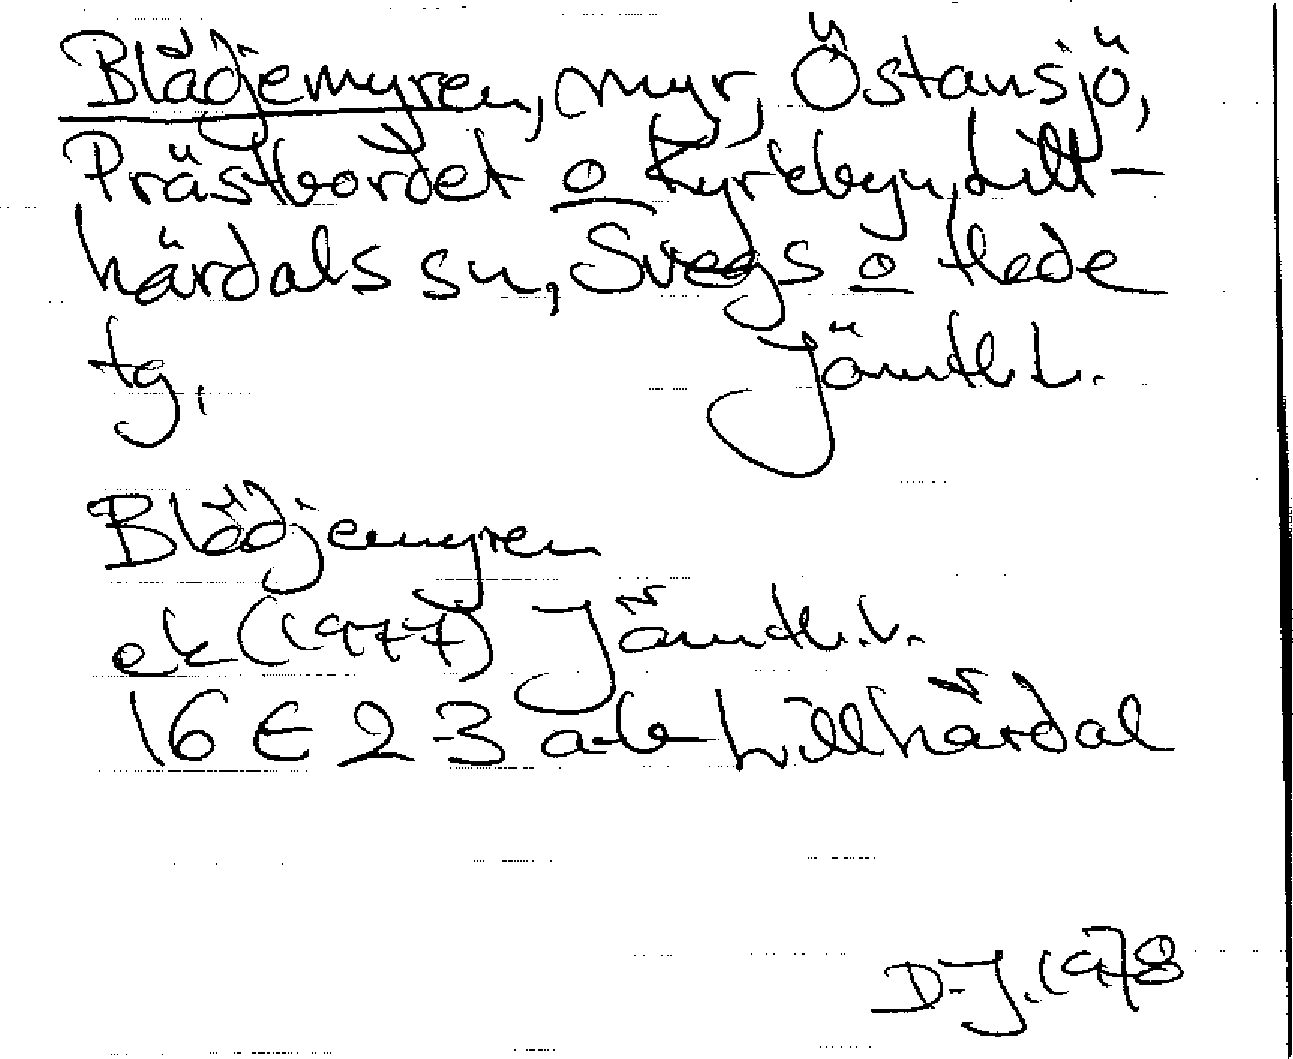 Blädjemyren, myr, Östansjö,
Prästbordet o Kyrkbyn, Lill-
härdals sn, Svegs o Hede
tg. Jämtl. l.
Blädjemyren
ek (1977) Jämtl. l.
16 E 2-3 a-b Lillhärdal
D-J. 1978